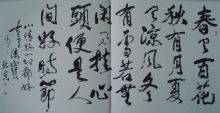 春有百花
秋有月夏
有涼風冬
有雪若無
閑事挂心
頭便是人
間好時節
一切都好